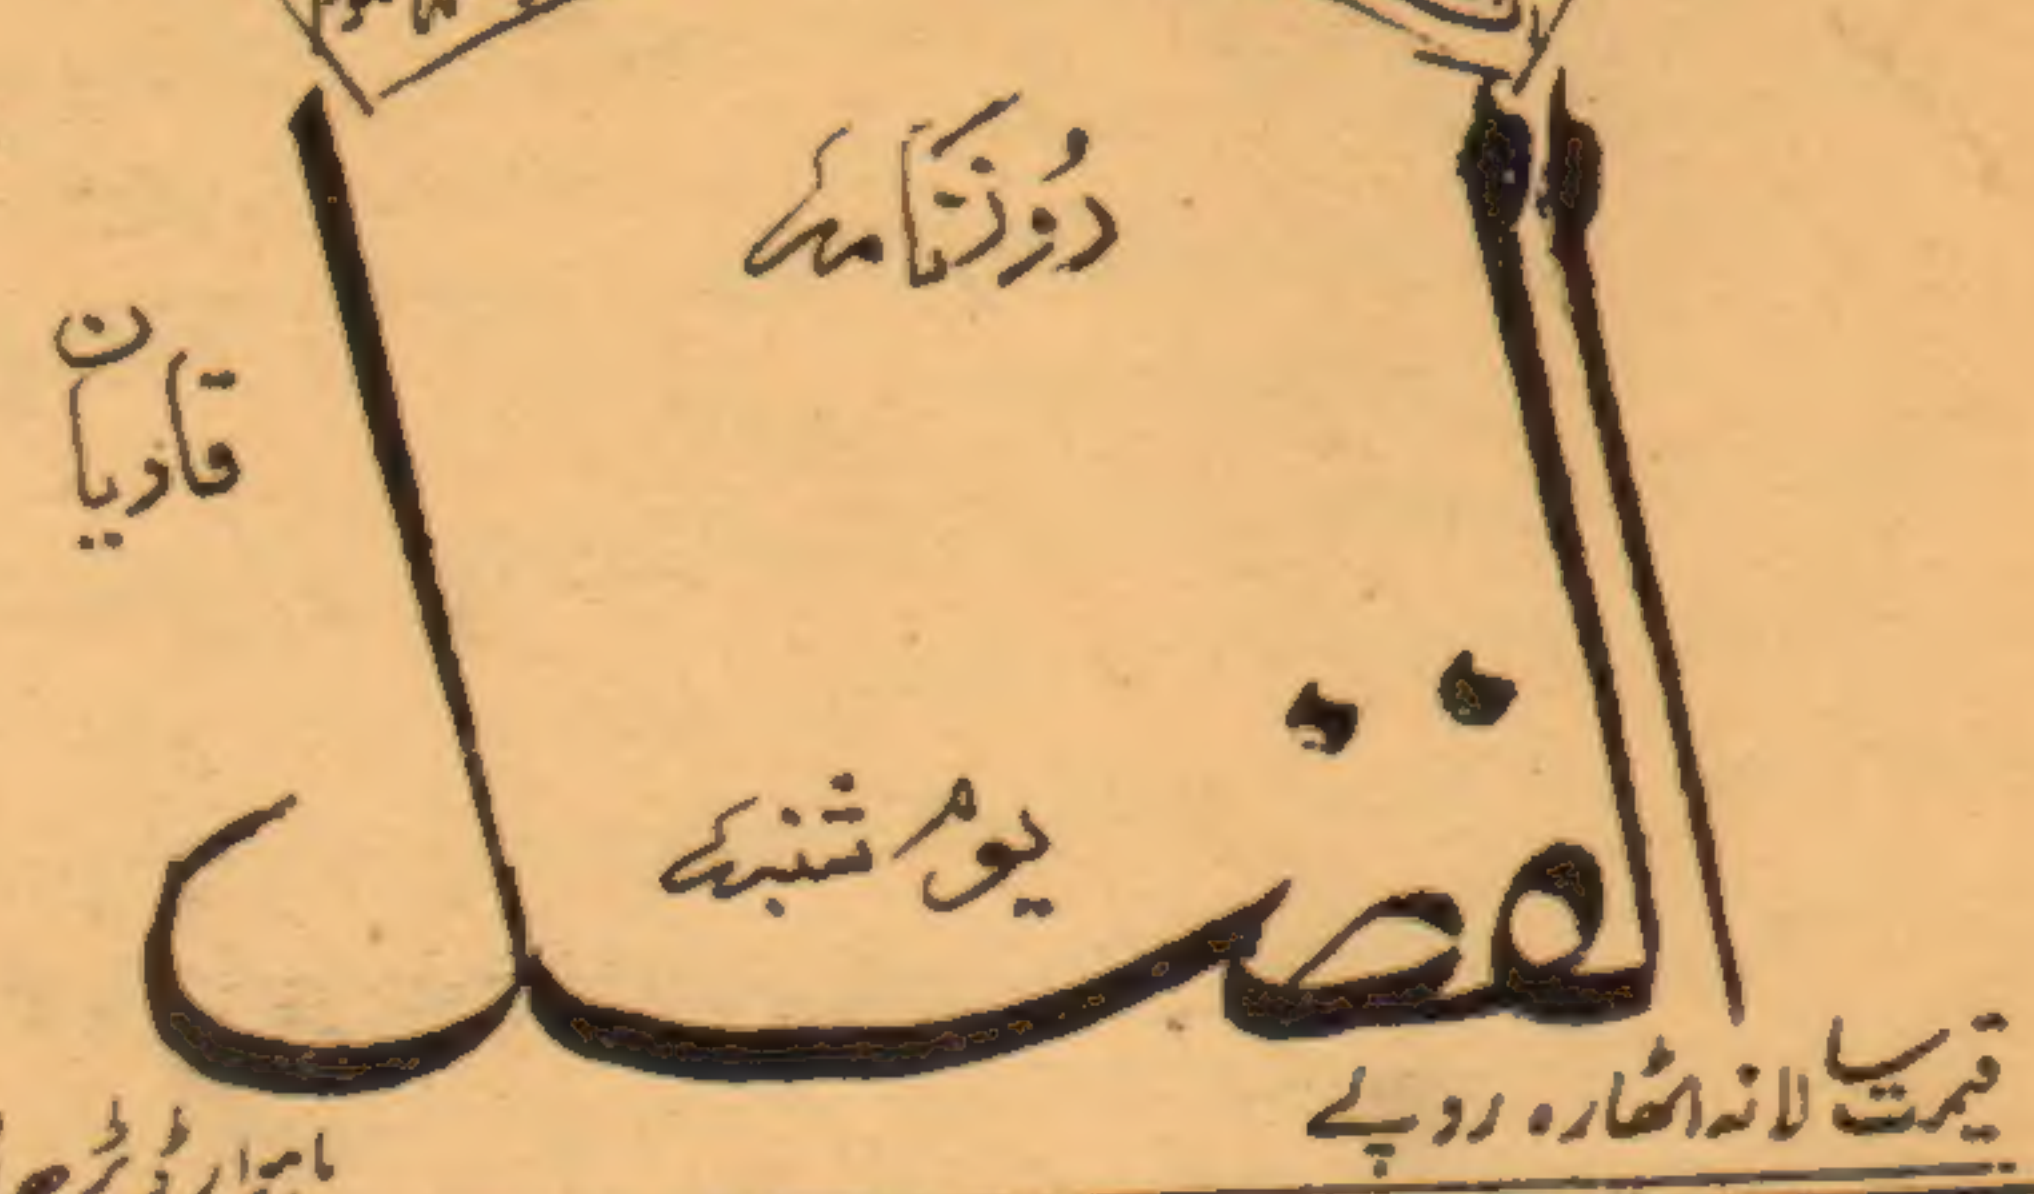 روزنامہ
الفضل
قادیان
یوم شنبہ
قیمت سالانہ اٹھارہ روپے
ماہوار ڈیڑھ